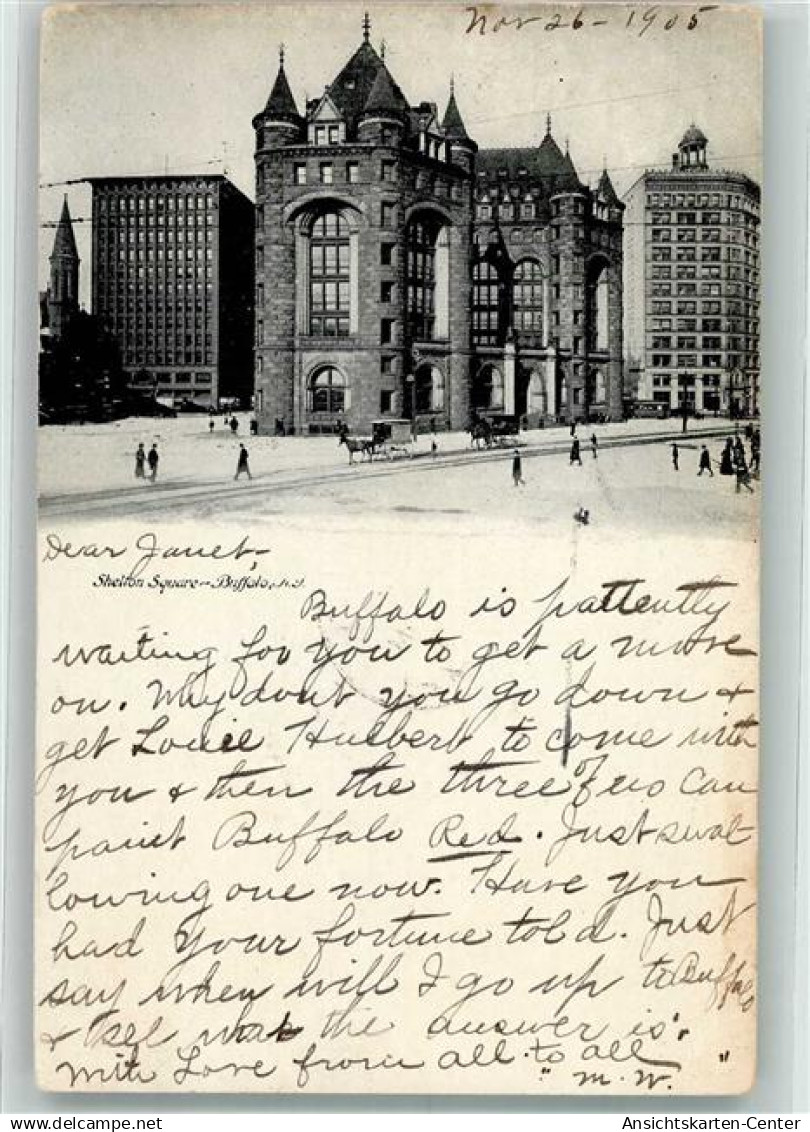 Nov 26 - 1905
Dear Janet,-
Shelton Square - Buffalo, N.Y.
Buffalo is pattently
waiting for you to get a move
on. Why dont you go down +
get Louie Hulbert to come with
you + then the three of us can
paint Buffalo Red. Just swal
lowing one now. Have you
had your fortune told. Just
say when will I go up to Buffalo
+ see what the answer is.
With Love from all to all
" M. W. "
Ansichtskarten-Center